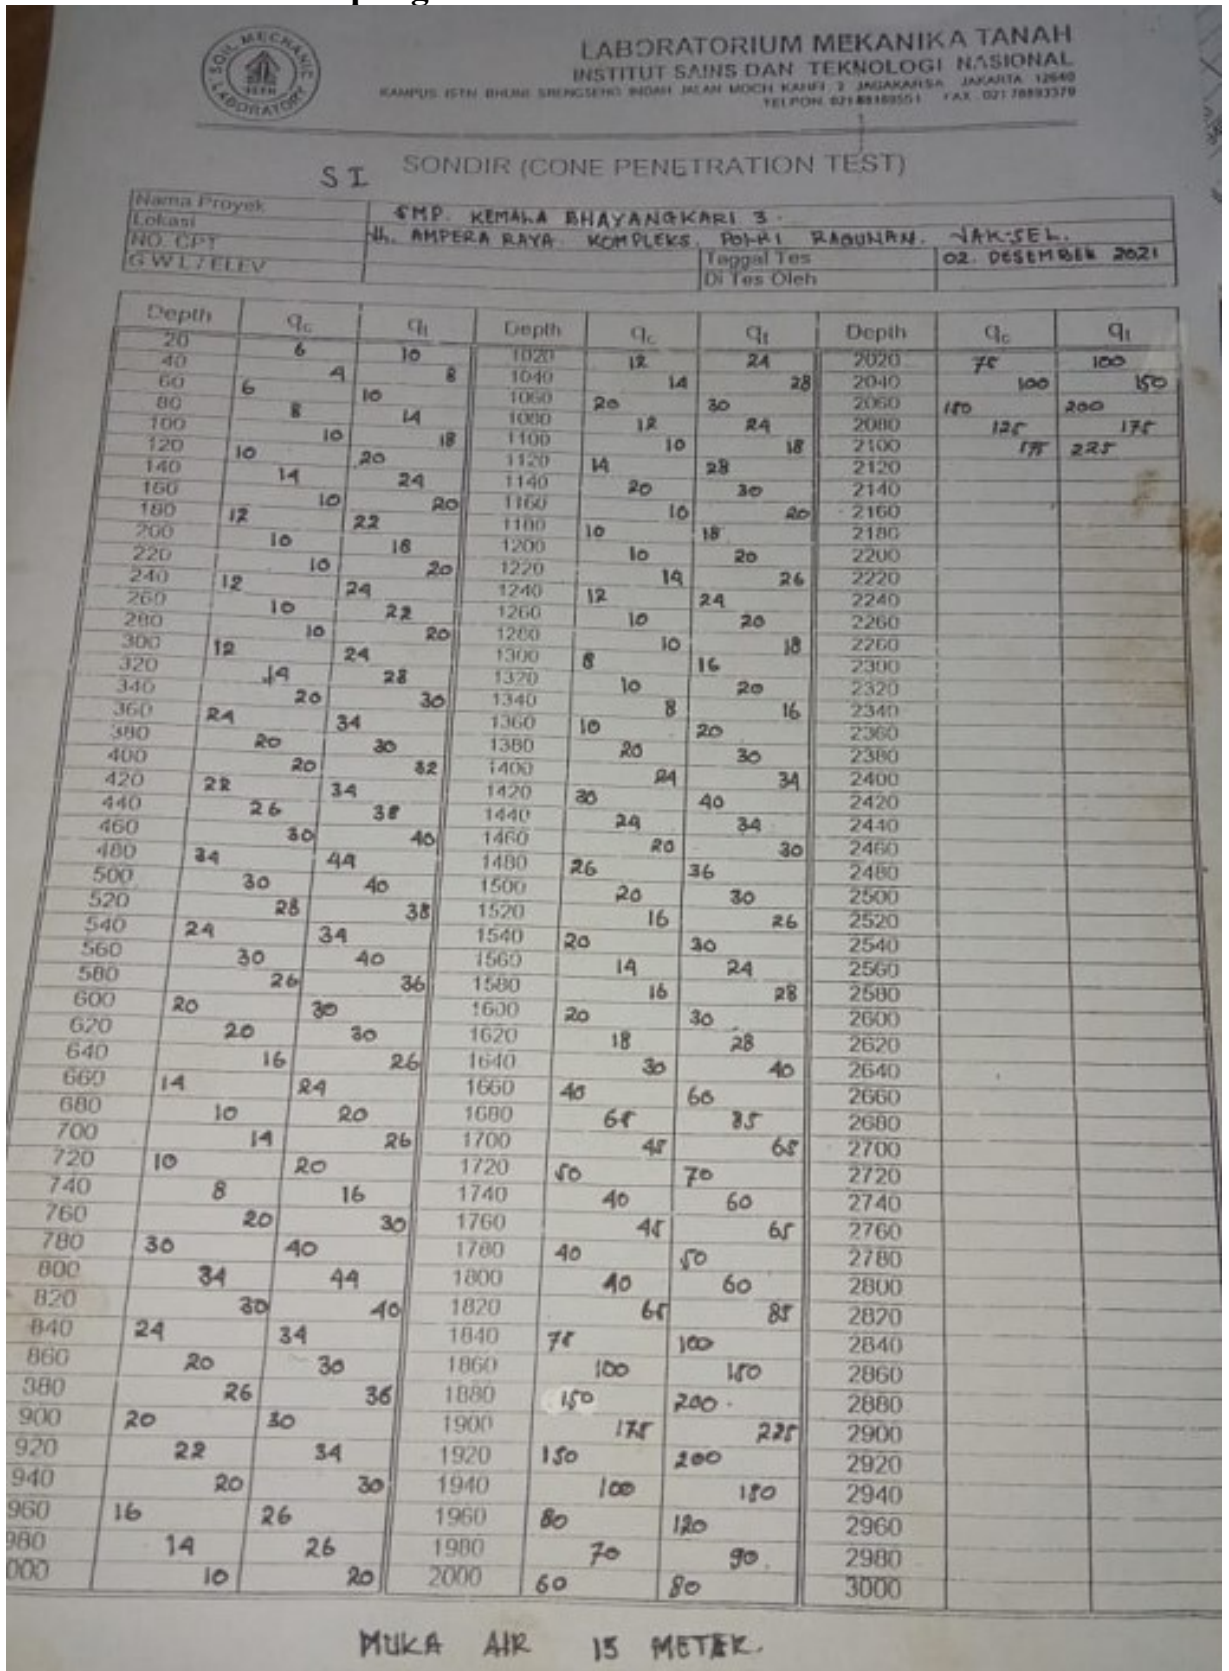 SOIL MECHANIC
ISTN
LABORATORY
LABORATORIUM MEKANIKA TANAH
INSTITUT SAINS DAN TEKNOLOGI NASIONAL
KAMPUS ISTN BHUMI SRENGSENG INDAH JALAN MOCH KAHFI 2 JAGAKARSA JAKARTA 12640
TELPON 021 FAX 021 78893379
S I SONDIR (CONE PENETRATION TEST)
Nama Proyek SMP. KEMALA BHAYANGKARI 3.
Lokasi JL. AMPERA RAYA KOMPLEKS POLRI RAGUNAN. JAK-SEL.
NO. CPT Taggal Tes 02. DESEMBER 2021
G.W.L / ELEV Di Tes Oleh
Depth qc qt Depth qc qt Depth qc qt
20 6 10 1020 12 24 2020 75 100
40 4 8 1040 14 28 2040 100 150
60 6 10 1060 20 30 2060 150 200
80 8 14 1080 12 24 2080 125 175
100 10 18 1100 10 18 2100 175 225
120 10 20 1120 14 28 2120
140 14 24 1140 20 30 2140
160 10 20 1160 10 20 2160
180 12 22 1180 10 18 2180
200 10 18 1200 10 20 2200
220 10 20 1220 14 26 2220
240 12 24 1240 12 24 2240
260 10 22 1260 10 20 2260
280 10 20 1280 10 18 2260
300 12 24 1300 8 16 2300
320 14 28 1320 10 20 2320
340 20 30 1340 8 16 2340
360 24 34 1360 10 20 2360
380 20 30 1380 20 30 2380
400 20 32 1400 24 34 2400
420 22 34 1420 30 40 2420
440 26 38 1440 24 34 2440
460 30 40 1460 20 30 2460
480 34 44 1480 26 36 2480
500 30 40 1500 20 30 2500
520 28 38 1520 16 26 2520
540 24 34 1540 20 30 2540
560 30 40 1560 14 24 2560
580 26 36 1580 16 28 2580
600 20 30 1600 20 30 2600
620 20 30 1620 18 28 2620
640 16 26 1640 30 40 2640
660 14 24 1660 40 60 2660
680 10 20 1680 65 85 2680
700 14 26 1700 45 65 2700
720 10 20 1720 50 70 2720
740 8 16 1740 40 60 2740
760 20 30 1760 45 65 2760
780 30 40 1780 40 50 2780
800 34 44 1800 40 60 2800
820 30 40 1820 65 85 2820
840 24 34 1840 75 100 2840
860 20 30 1860 100 150 2860
880 26 36 1880 150 200 2880
900 20 30 1900 175 225 2900
920 22 34 1920 150 200 2920
940 20 30 1940 100 150 2940
960 16 26 1960 80 120 2960
980 14 26 1980 70 90 2980
000 10 20 2000 60 80 3000
MUKA AIR 15 METER.